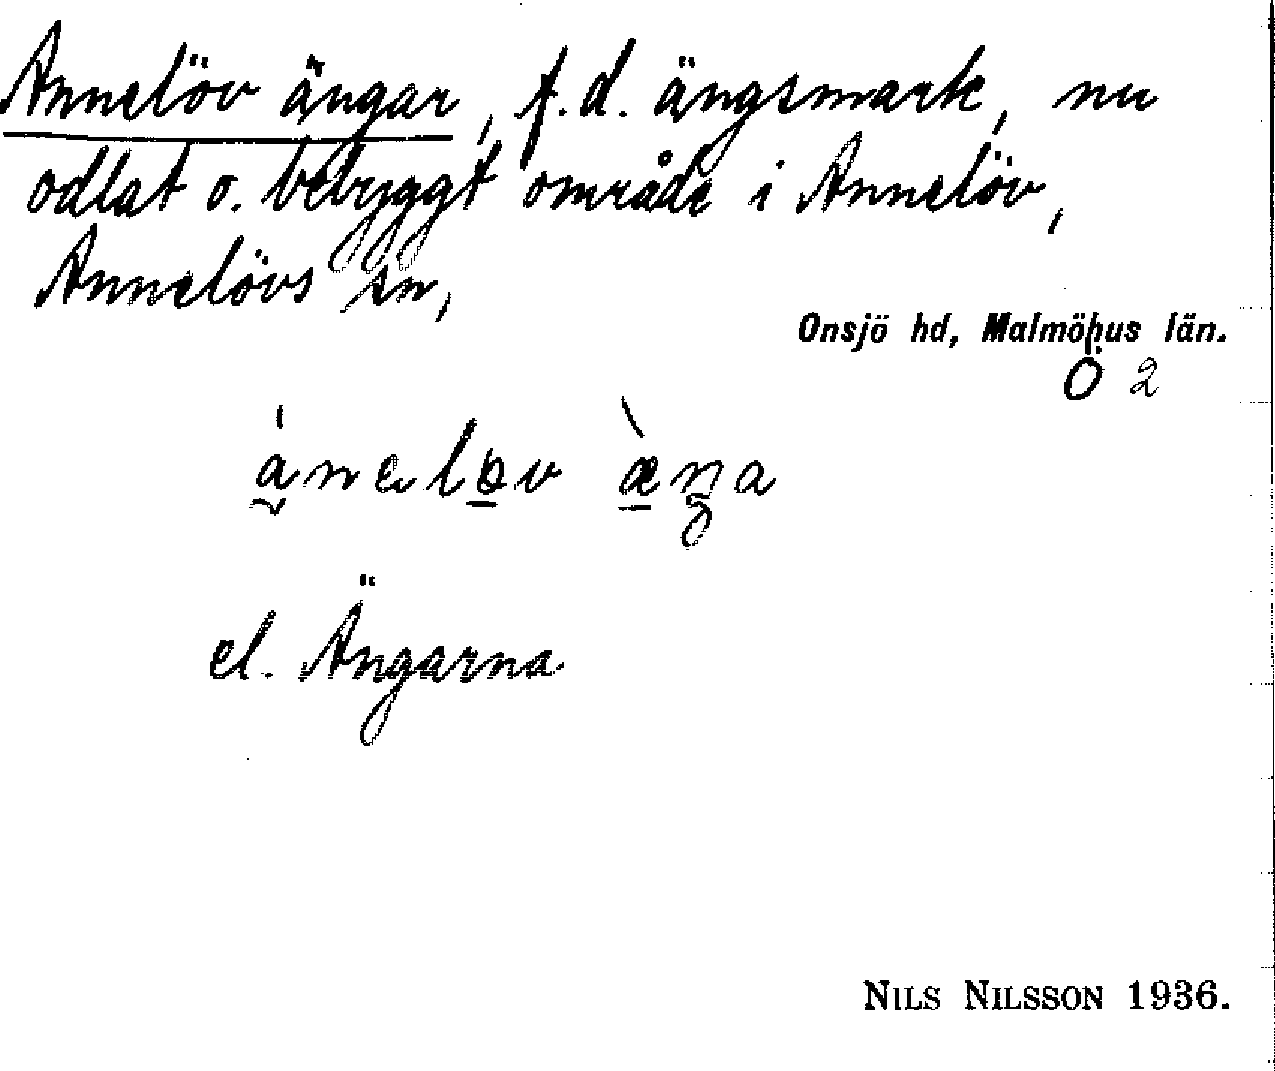 Annelöv ängar, f.d. ängsmark, nu
odlat o. bebyggt område i Annelöv,
Annelövs sn,
Onsjö hd, Malmöhus län.
Ö 2
el. Ängarna
NILS NILSSON 1936.